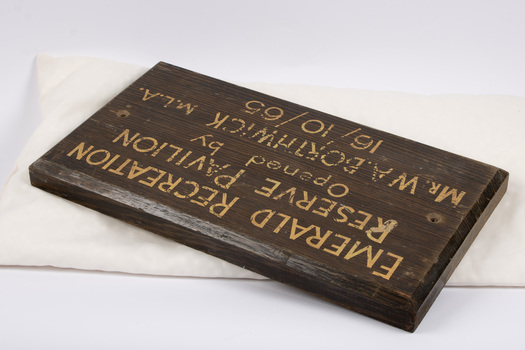 EMERALD RECREATION
RESERVE PAVILION
Opened by
Mr. W.A. BORTHWICK M.L.A.
16/10/65